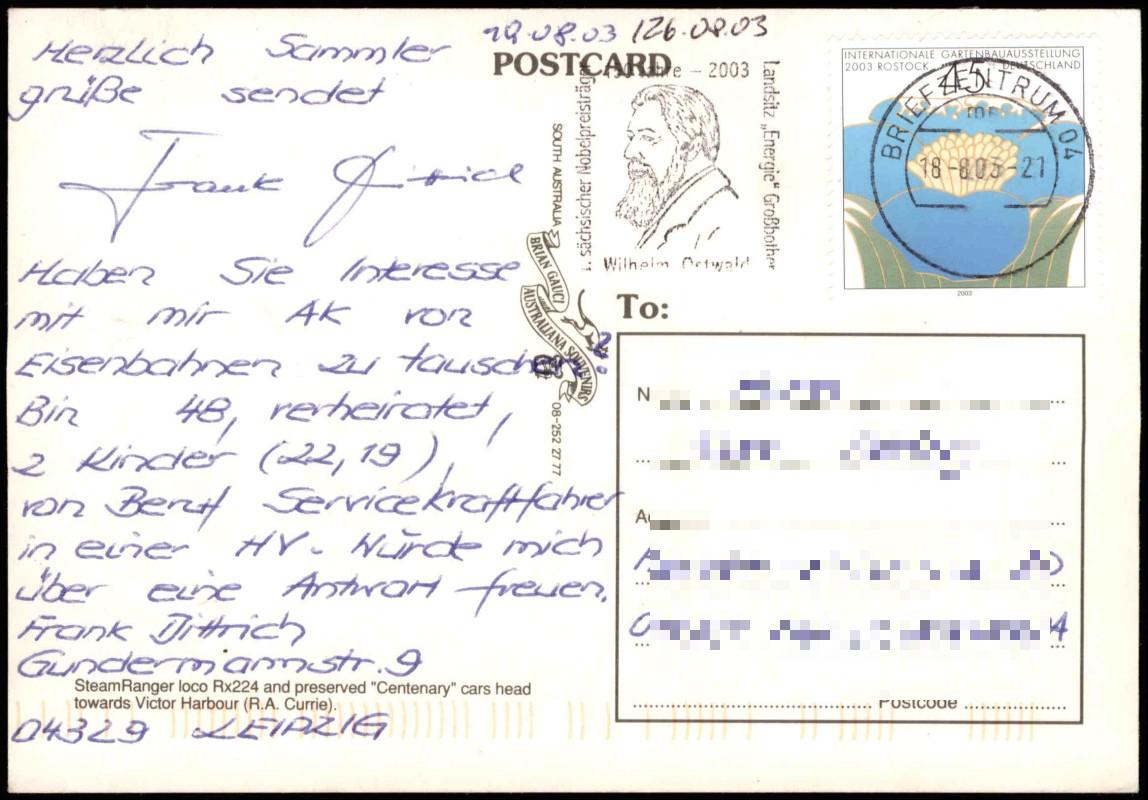 19.08.03 / 26.08.03
Herzlich Sammler
grüße sendet
Frank Dittrich
Haben Sie Interesse
mit mir AK von
Eisenbahnen zu tauschen?
Bin 48, verheiratet,
2 Kinder (22, 19),
von Beruf Servicekraftfahrer
in einer HV. Würde mich
über eine Antwort freuen.
Frank Dittrich
Gundermannstr. 9
SteamRanger loco Rx224 and preserved "Centenary" cars head
towards Victor Harbour (R.A. Currie).
04329 LEIPZIG
POSTCARD
SOUTH AUSTRALIA
BRIAN GAUCI
AUSTRALIANA SOUVENIRS
08-252 27 77
sächsischer Nobelpreisträger
– 2003
Landsitz „Energie" Großbothen
Wilhelm Ostwald
INTERNATIONALE GARTENBAUAUSSTELLUNG
2003 ROSTOCK DEUTSCHLAND
45
BRIEFZENTRUM 04
18-8.03-21
2003
To:
N
A
Postcode